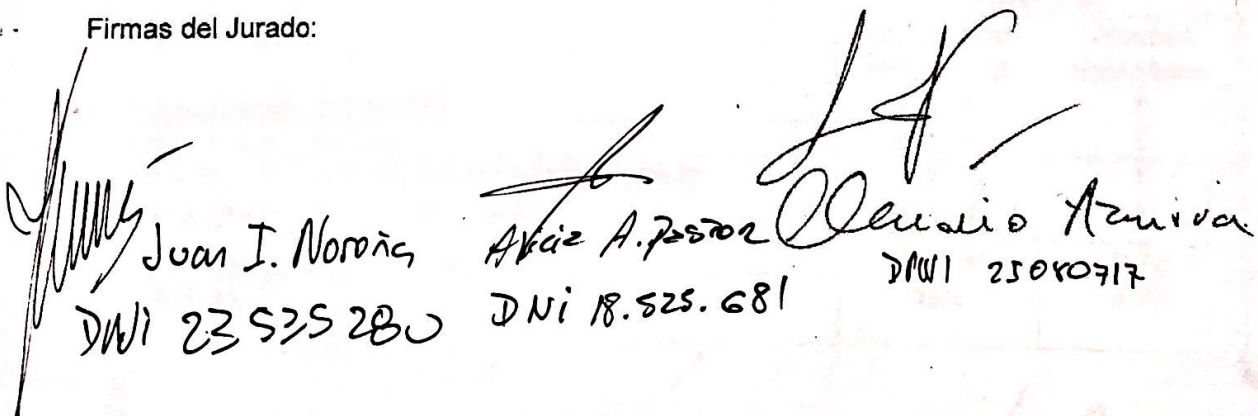 Firmas del Jurado:
Juan I. Noroña
DNI 23 535 280
Alicia A. Pastor
DNI 18.525.681
Claudio
DNI 25080717